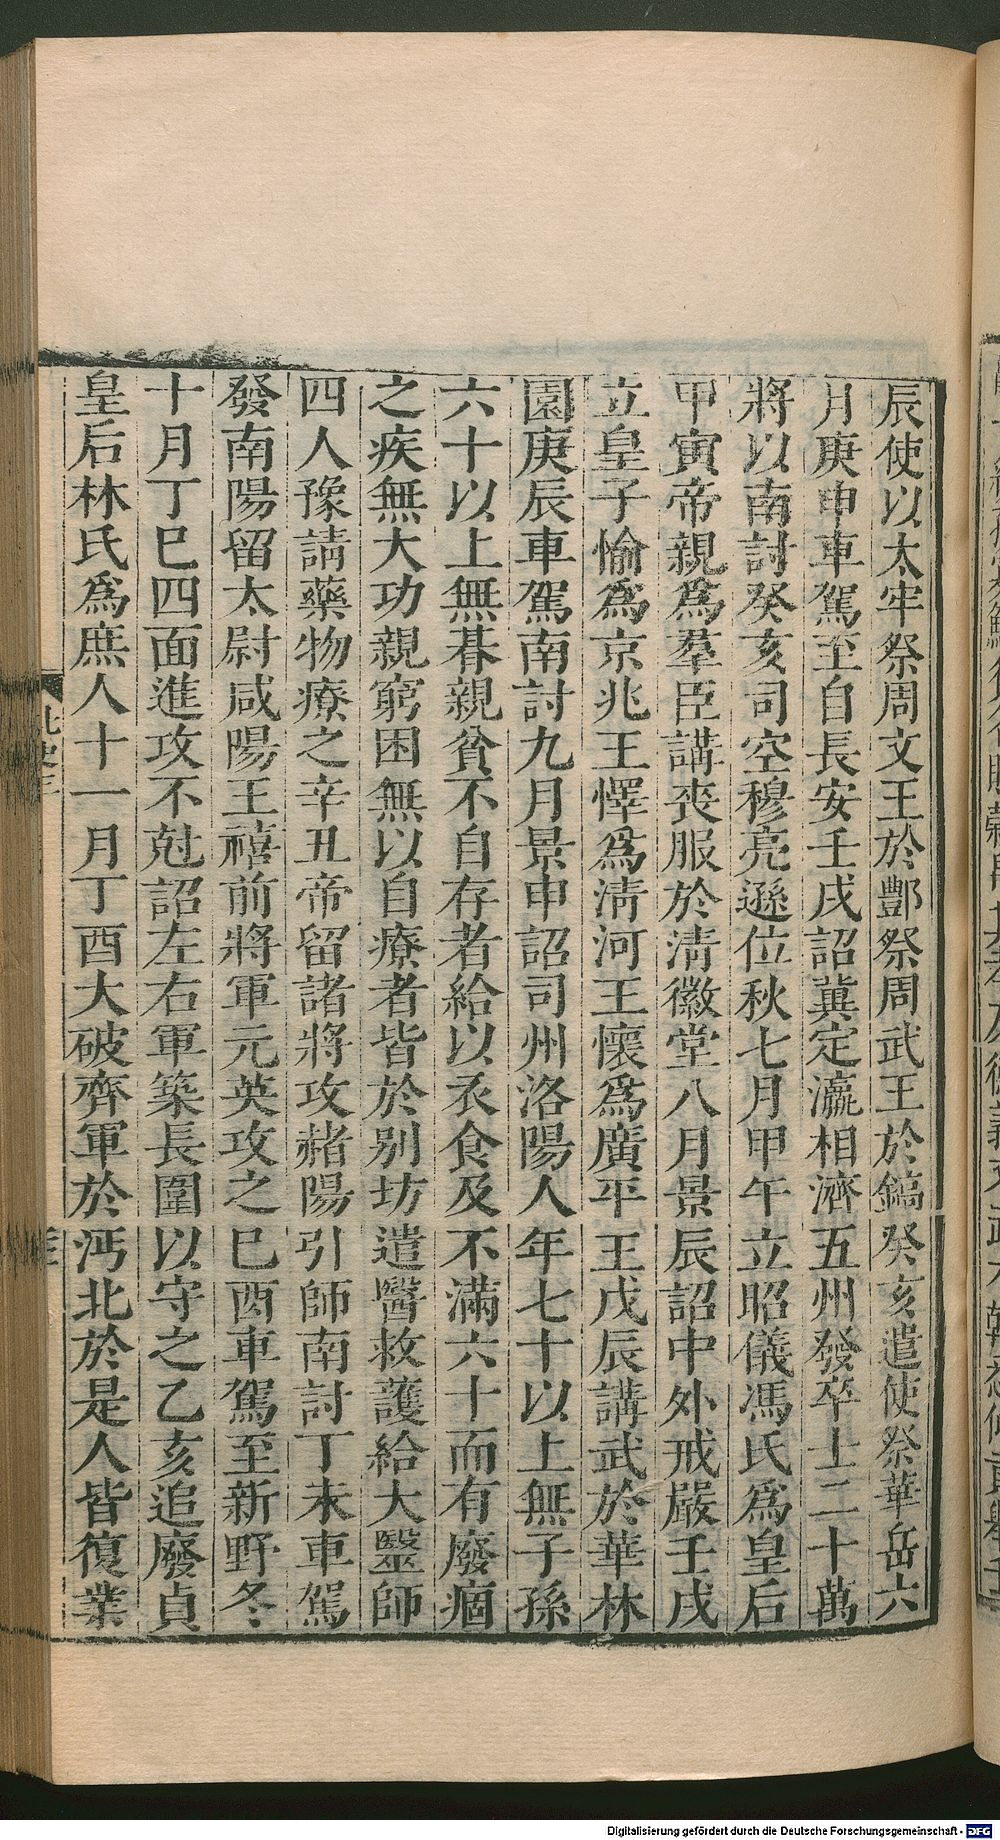 辰使以太牢祭周文王於酆祭周武王於鎬癸亥遣使祭華岳六
月庚申車駕至自長安壬戌詔冀定瀛相濟五州發卒士二十萬
將以南討癸亥司空穆亮遜位秋七月甲午立昭儀馮氏爲皇后
甲寅帝親爲羣臣講喪服於淸徽堂八月景辰詔中外戒嚴壬戌
立皇子愉爲京兆王懌爲淸河王懷爲廣平王戊辰講武於華林
園庚辰車駕南討九月景申詔司州洛陽人年七十以上無子孫
六十以上無朞親貧不自存者給以衣食及不滿六十而有廢痼
之疾無大功親窮困無以自療者皆於别坊遣醫救護給大毉師
四人豫請藥物療之辛丑帝留諸將攻赭陽引師南討丁未車駕
發南陽留太尉咸陽王禧前將軍元英攻之巳酉車駕至新野冬
十月丁巳四面進攻不尅詔左右軍築長圍以守之乙亥追廢貞
皇后林氏爲庶人十一月丁酉大破齊軍於沔北於是人皆復業
Digitalisierung gefördert durch die Deutsche Forschungsgemeinschaft - DFG